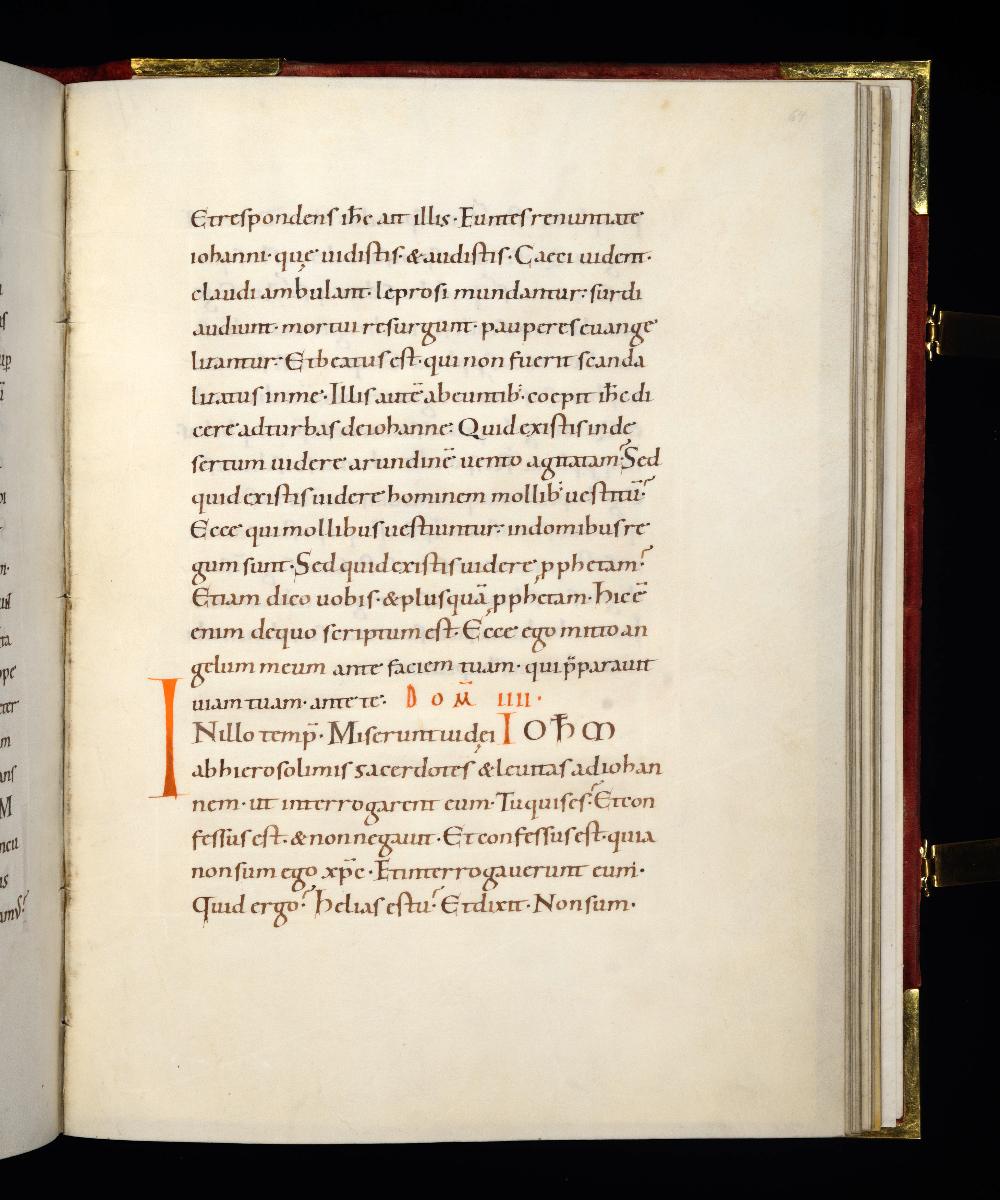 64
Et respondens ih̅c ait illis · Euntes renuntiate
iohanni · quę uidistis · & audistis · Caeci uident ·
claudi ambulant · leprosi mundantur : surdi
audiunt · mortui resurgunt · pauperes euange
lizantur : Et beatus est · qui non fuerit scanda
lizatus in me · Illis autē abeuntib; · coepit ih̅c di
cere ad turbas de iohanne : Quid existis in de
sertum uidere arundinē uento agitatam ? Sed
quid existis uidere hominem mollib; uestitū ?
Ecce qui mollibus uestiuntur : in domibus re
gum sunt · Sed quid existis uidere ꝓphetam ?
Etiam dico uobis · & plusquā ꝓphetam · hic ē
enim de quo scriptum est · Ecce ego mitto an
gelum meum ante faciem tuam · qui p̄parauit
uiam tuam · ante te · Dom̄ IIII ·
IN illo temp̄ · Miserunt iudęi IOH̅M
ab hierosolimis sacerdotes & leuitas ad iohan
nem · ut interrogarent eum · Tu quis es ? Et con
fessus est · & non negauit · Et confessus est · quia
non sum ego xp̅c · Et interrogauerunt eum ·
Quid ergo ? helias es tu ? Et dixit · Non sum ·